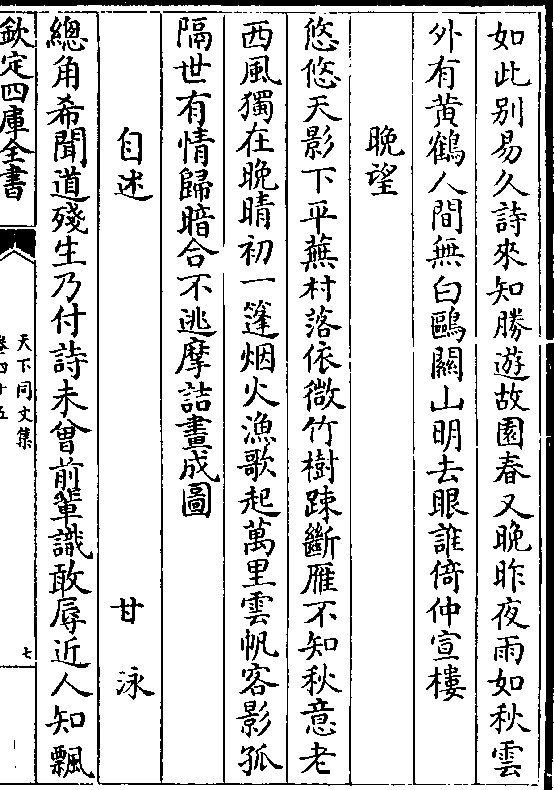 如此别易久詩來知勝遊故園春又晚昨夜雨如秋雲
外有黄鶴人間無白鷗關山明去眼誰倚仲宣樓
晩望
悠悠天影下平蕪村落依微竹樹踈斷雁不知秋意老
西風獨在晩晴初一篷烟火漁歌起萬里雲帆客影孤
隔世有情歸暗合不逃摩詰畫成圖
自述 甘泳
總角希聞道殘生乃付詩未曾前輩識敢辱近人知飄
欽定四庫全書
天下同文集
卷四十五
七